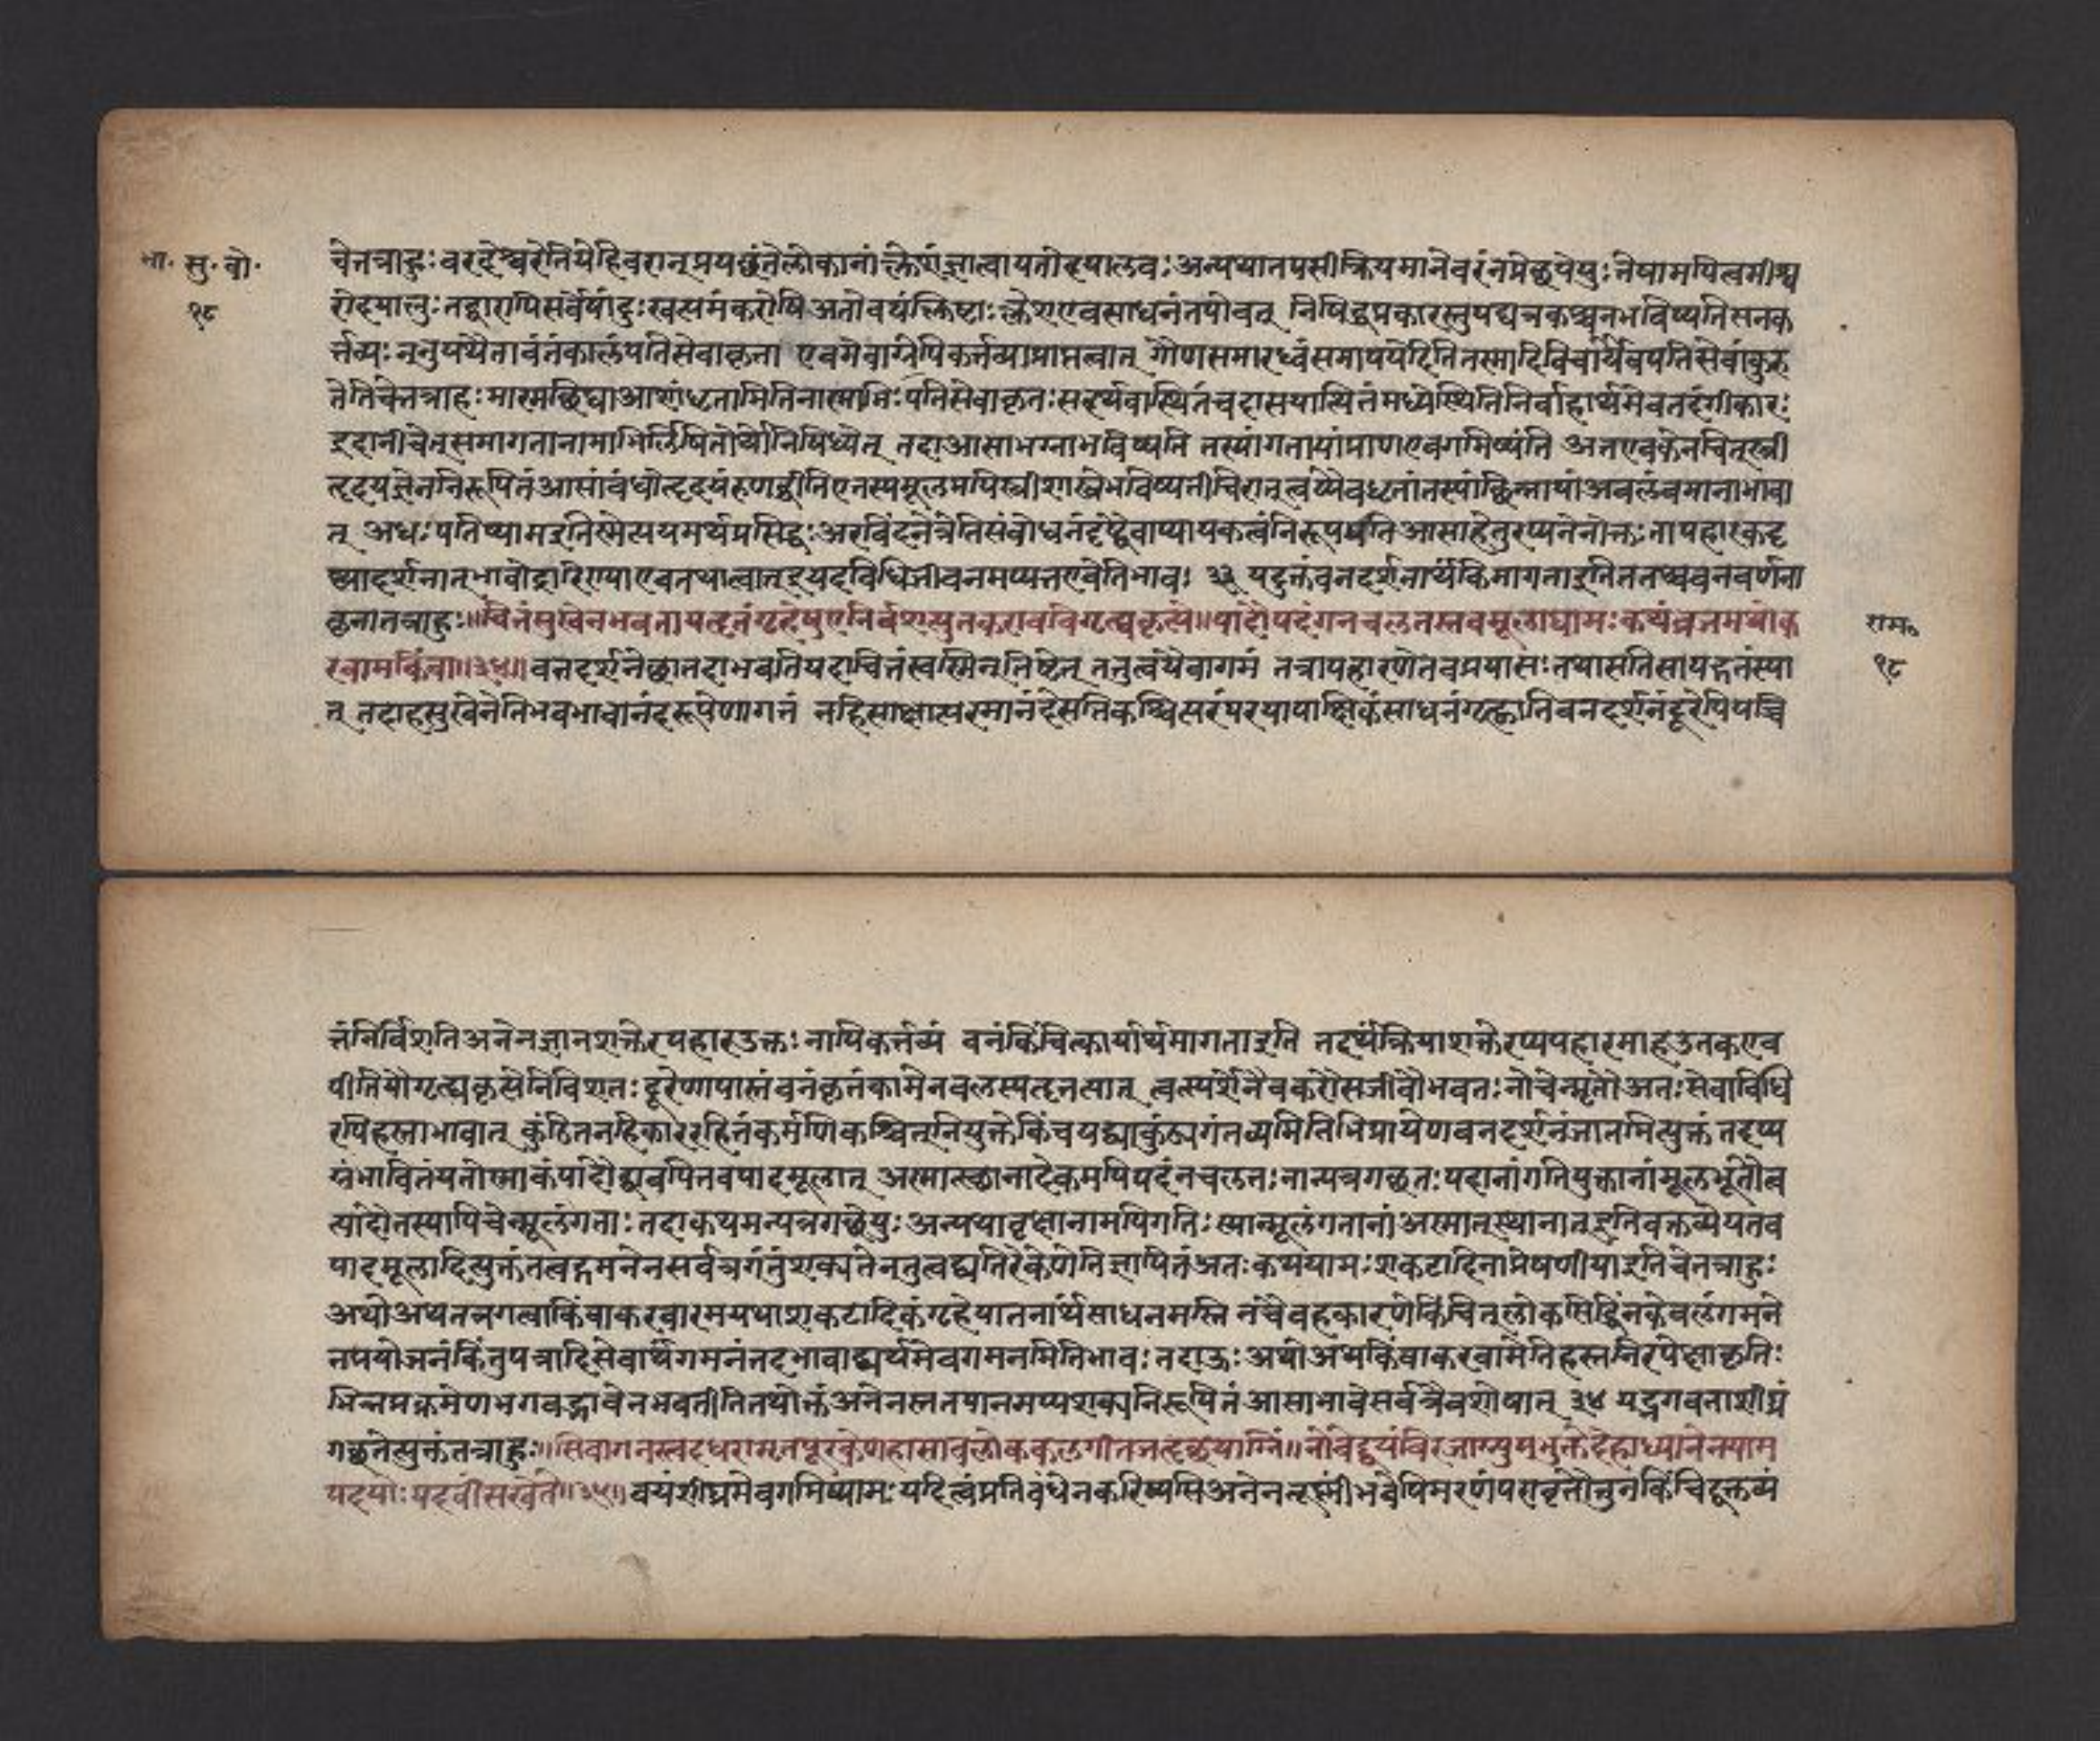 भा. सु. बो.
१८
चेत्तत्राहुः वरदेश्वरेतियेहिवरान् प्रयछंतेलोकानांक्लेशंज्ञात्वायतोदयालवः अन्यथातपसीक्रियमानेवरंनप्रेछयेयुः तेषामपित्वमीश्व
रोदयालुः तद्वारापिसर्वेषांदुःखत्पमंकरोषि अतोवयंक्लिष्टाः क्लेशएवसाधनंतपोवत् निषिद्धप्रकारस्तुपद्यत्रकश्चनभविष्यतिसनक
र्त्तव्यः ननुपथैतावंतंकालंपतिसेवाकृता एवमेवाग्रेपिकर्त्तव्याप्राप्तत्वात् गौणसमारध्वंसमापयेदितितस्मादिविचार्यैवपतिसेवांकुरु
तेतिचेत्तत्राह मास्मछिद्याआशांधृतामितिनास्माभिः पतिसेवाकृतः सत्द्यर्थेवास्थितंचदासयास्थितंमध्येस्थितिनिर्वाहार्थमेवतदंगीकारः
इदानींचेत्समागतानामाभिर्लषितोर्थोनिषिध्येत् तदाआसाभग्नाभविष्यति तस्यांगतायांप्राणएवगमिष्यंति अतएवकेनचित्स्त्री
हृदयज्ञेननिरूपितंआसांबंधोत्हृदयंरुणद्धीतिएतस्यमूलमपिस्त्रीशास्त्रेभविष्यतीचिरात्त्वय्येवधृतांतस्यांछिन्नायांअवलंबमानाभावा
त् अधः पतिष्यामइतिस्मेत्ययमर्थप्रसिद्धः अरविंदनेत्रेतिसंबोधनंदृष्ट्वैवाप्यायकत्वंनिरूपयति आसाहेतुरप्यनेनोक्तः तापहारकदृ
ष्यादर्शनात्भावोद्गारिण्याएवतथात्वात् इयदवधिजीवनमप्यतएवेतिभावः ३३ यदुक्तंवनदर्शनार्थंकिमागताइतिततश्चवनवर्णना
कृतातत्राहुः॥चित्तंसुखेनभवतापहृतंगृहेषुयन्निर्विशत्युतकरावपिगृह्यकृत्ये॥पादौपदंनचलतस्तवपादमूलाद्यामःकथंव्रजमथोक
रवामकिंवा॥३४॥ वनदर्शनेछातदाभवतियदाचित्तंस्वस्मिन्तिष्टेत् तत्तुत्वयैवागमं तत्रापहारणेतवप्रयासः तथासतिसायद्गतंस्या
त् तदाहसुखेनेतिभवभावानंदरूपेणागतं नहिसाक्षात्परमानंदेसतिकश्चित्परंपरयापाक्षिकंसाधनंगृह्णातिवनदर्शनंदूरेपियच्चि
राम॰
१८
त्तंनिर्विशतिअनेनज्ञानशक्तेरपहारउक्तः नापिकर्त्तव्यं वनंकिंचित्कार्यार्थमागताइति तदर्थंक्रियाशक्तेरप्यपहारमाहउतकराव
पीतियौगृह्यकृत्सेनिविशतः दूरेणापास्तंवनंकृतंकामेनवलस्यहृतत्वात् त्वत्स्पर्शेनैवकरौसजीवौभवतः नोचेन्मृतौ अतः सेवाविधि
रपिहस्ताभावात् कुंठितनहिकाररहितंकर्मणिकश्चित्नियुक्तेकिंचयद्व्याकुंठ्यगंतव्यमितिभिप्रायेणवनदर्शनंजातमित्युक्तं तदप्य
संभावितंयतोस्माकंपादौद्वावपितवपादमूलात् अस्मात्स्थानादेकमपिपदंनचलतः नान्यत्रगछतः पदानांगतियुक्तानांमूलभूतौव
त्पादौतस्यापिचेन्मूलंगताः तदाकथमन्यत्रगछेयुः अन्यथावृक्षानामपिगतिः स्यान्मूलंगतानां अस्मात्स्थानात्इतिवक्तव्येयतव
पादमूलादित्युक्तंतत्वद्गमनेनसर्वत्रगंतुंशक्यतेनतुत्वद्व्यतिरेकेणेतिज्ञापितंअतः कथंयामः शकटादिनाप्रेषणीयाइतिचेत्तत्राहुः
अथोअथतत्रगत्वाकिंवाकरवारमयथाशकटादिकंगृहेयाततार्थसाधनमस्ति नचैवहकारणेकिंचित्लोकसिद्धिंनकेवलंगमने
नप्रयोजनंकिंतुपत्रादिसेवार्थंगमनंतदभावाद्व्यर्थमेवगमनमितिभावः तदाऊः अथोअथकिंवाकरवामेतिहस्तनिरपेक्षाकृतिः
भिन्नप्रक्रमेणभगवद्भावेनभवतीतितथोक्तंअनेनस्तनपानमप्यशक्यनिरूपितंआसाभावेसर्वत्रैवशोषात् ३४ यद्भगवताशीघ्रं
गछतेत्युक्तंतत्राहुः॥सिंचांगनस्त्वदधरामृतपूरकेणहासावलोककलगीतजहृछयाग्निं॥नोचेद्वयंविरजाग्न्युपभुक्तदेहाध्यानेनयाम
पदयोःपदवींसखेते॥३५॥ वयंशीघ्रमेवगमिष्यामः यदित्वंप्रतिबंधेनकरिष्यसिअनेनलक्ष्मींभवेपिमरणंपरावृत्तौतुनकिंचिद्वक्तव्यं